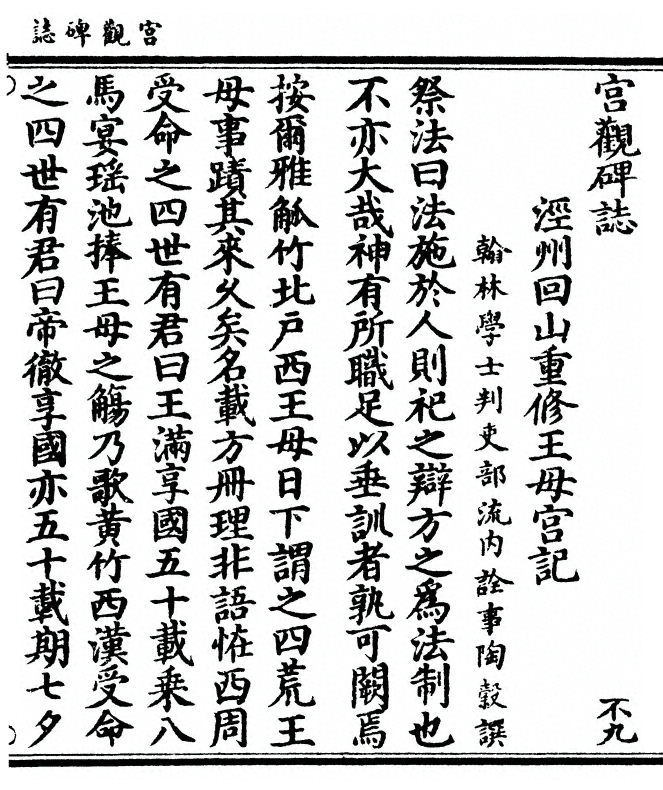 宮觀碑誌
宮觀碑誌 不九
涇州回山重修王母宮記
翰林學士判吏部流内詮事陶穀譔
祭法曰法施於人則祀之辯方之為法制也
不亦大哉神有所職足以垂訓者孰可闕焉
按爾雅觚竹北戶西王母日下謂之四荒王
母事蹟其來久矣名載方冊理非語怪西周
受命之四世有君曰王滿享國五十載乘八
馬宴瑶池捧王母之觴乃歌黃竹西漢受命
之四世有君曰帝徹享國亦五十載期七夕